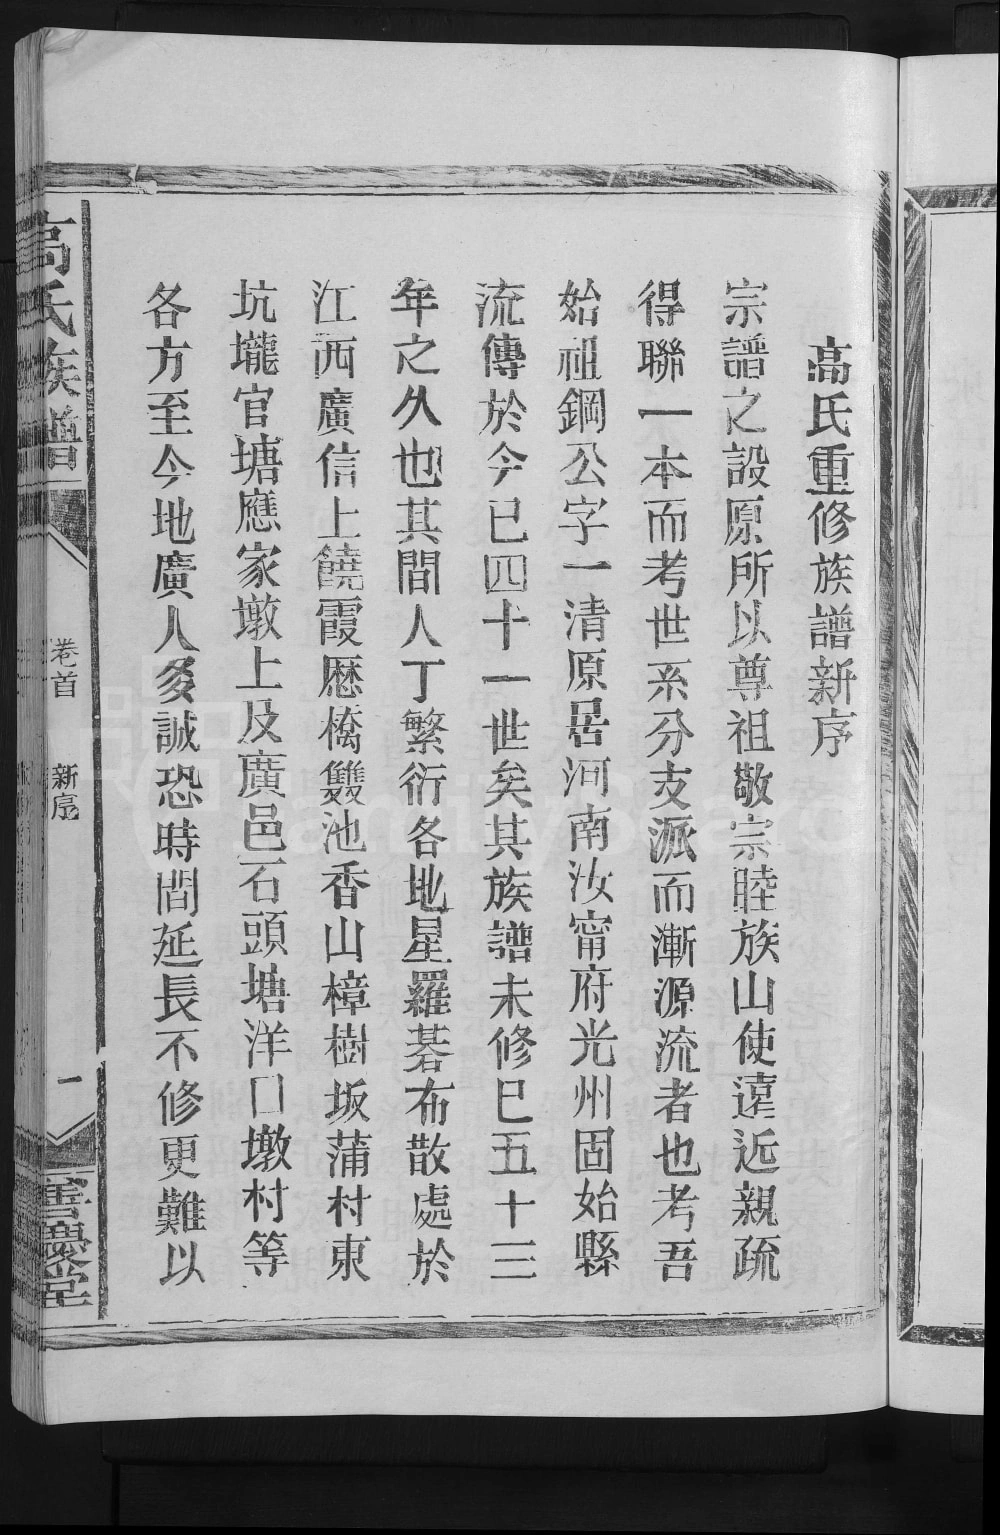 高氏重修族譜新序
宗譜之設原所以尊祖敬宗睦族山使遠近親疏
得聯一本而考世系分支派而漸源流者也考吾
始祖鋼公字一清原居河南汝甯府光州固始縣
流傳於今已四十一世矣其族譜未修已五十三
年之久也其間人丁繁衍各地星羅碁布散處於
江西廣信上饒霞厯橋雙池香山樟樹坂蒲村東
坑壠官塘應家墩上及廣邑石頭塘洋口墩村等
各方至今地廣人多誠恐時間延長不修更難以
高氏族譜
卷首
新序
一
善慶堂